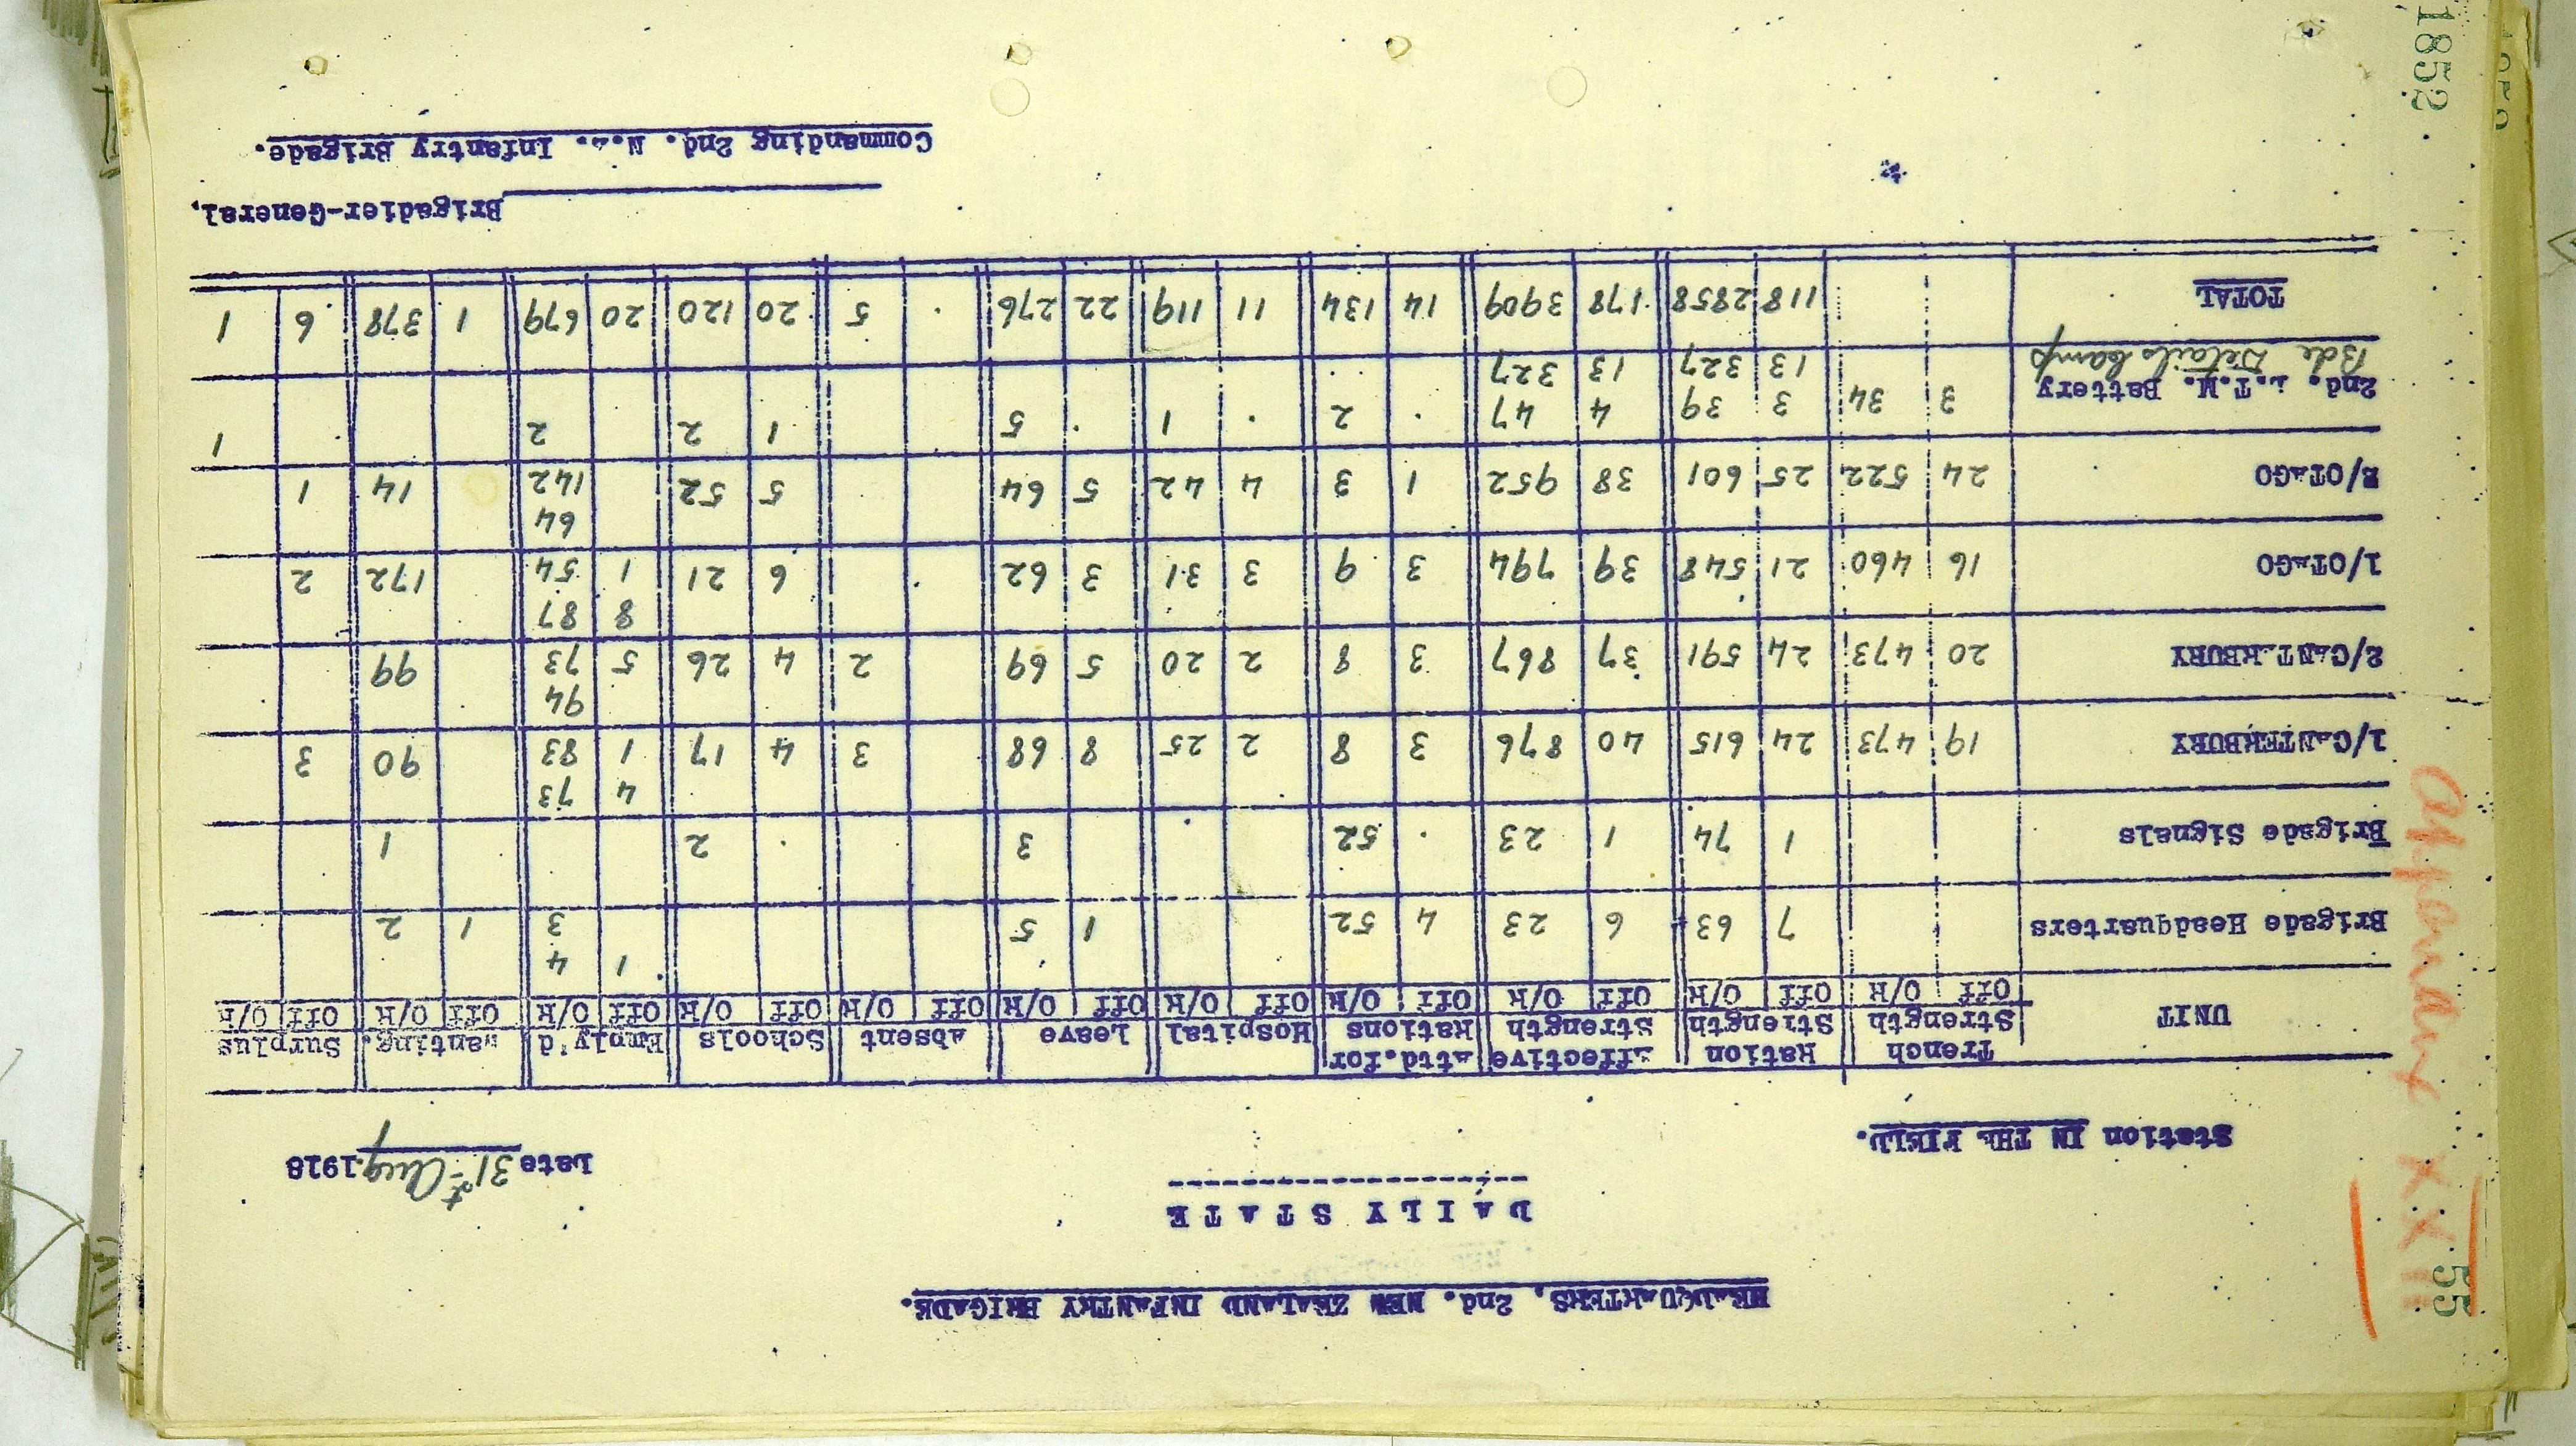 55
Appendix XXIII
1852
HEADQUARTERS, 2nd. NEW ZEALAND INFANTRY BRIGADE.
DAILY STATE
Station IN THE FIELD. Date 31st Aug 1918
UNIT Trench Strength Ration Strength Effective Strength Attd.for Rations Hospital Leave Absent Schools Emply'd Wanting. Surplus
Off O/R Off O/R Off O/R Off O/R Off O/R Off O/R Off O/R Off O/R Off O/R Off O/R Off O/R
1 4
Brigade Headquarters 7 63 6 23 4 52 1 5 3 1 2
Brigade Signals 1 74 1 23 52 3 2 1
4 73
1/CANTERBURY 19 473 24 615 40 876 3 8 2 25 8 68 3 4 17 1 83 90 3
94
2/CANTERBURY 20 473 24 591 37 867 3 8 2 20 5 69 2 4 26 5 73 99
8 87
1/OTAGO 16 460 21 548 39 794 3 9 3 31 3 62 6 21 1 54 172 2
64
2/OTAGO 24 522 25 601 38 952 1 3 4 42 5 64 5 52 142 14 1
2nd. L.T.M. Battery 3 34 3 39 4 47 2 1 5 1 2 2 1
Bde Details Camp 13 327 13 327
TOTAL 118 2858 178 3909 14 134 11 119 22 276 5 20 120 20 679 1 378 6 1
Brigadier-General.
Commanding 2nd. N.Z. Infantry Brigade.